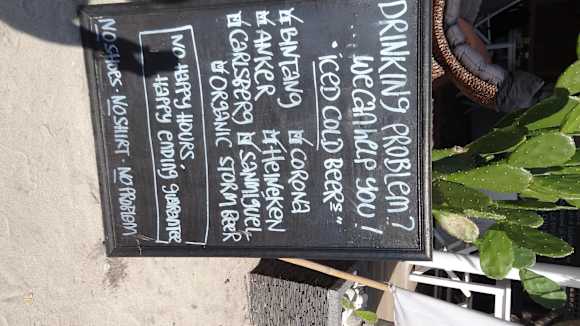 DRINKING PROBLEM?
... WE CAN HELP YOU!
"ICED COLD BEERS"
BINTANG CORONA
ANKER HEINEKEN
CARLSBERG SANMIGUEL
ORGANIC STORM BEER
NO HAPPY HOURS,
HAPPY ENDING GUARENTEE
NO SHOES - NO SHIRT - NO PROBLEM